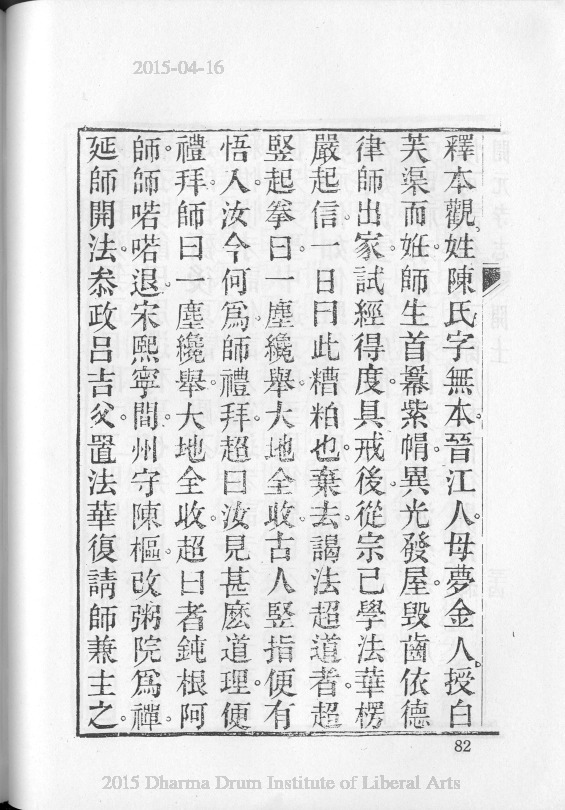 2015-04-16
釋本觀姓陳氏字無本。晉江人。母夢金人。授白
芙渠而姙。師生首羃紫帽。異光發屋。毀齒依德
律師出家。試經得度。具戒後。從宗已學法華楞
嚴起信。一日曰此糟粕也。棄去。謁法超道者。超
竪起拳曰。一塵纔舉。大地全收。古人竪指便有
悟入。汝今何爲。師禮拜。超曰。汝見甚麽道理。便
禮拜。師曰。一塵纔舉。大地全收。超曰。者鈍根阿
師。師喏喏退。宋熙寧間。州守陳樞改粥院爲禪。
延師開法。叅政呂吉父置法華。復請師兼主之。
82
2015 Dharma Drum Institute of Liberal Arts